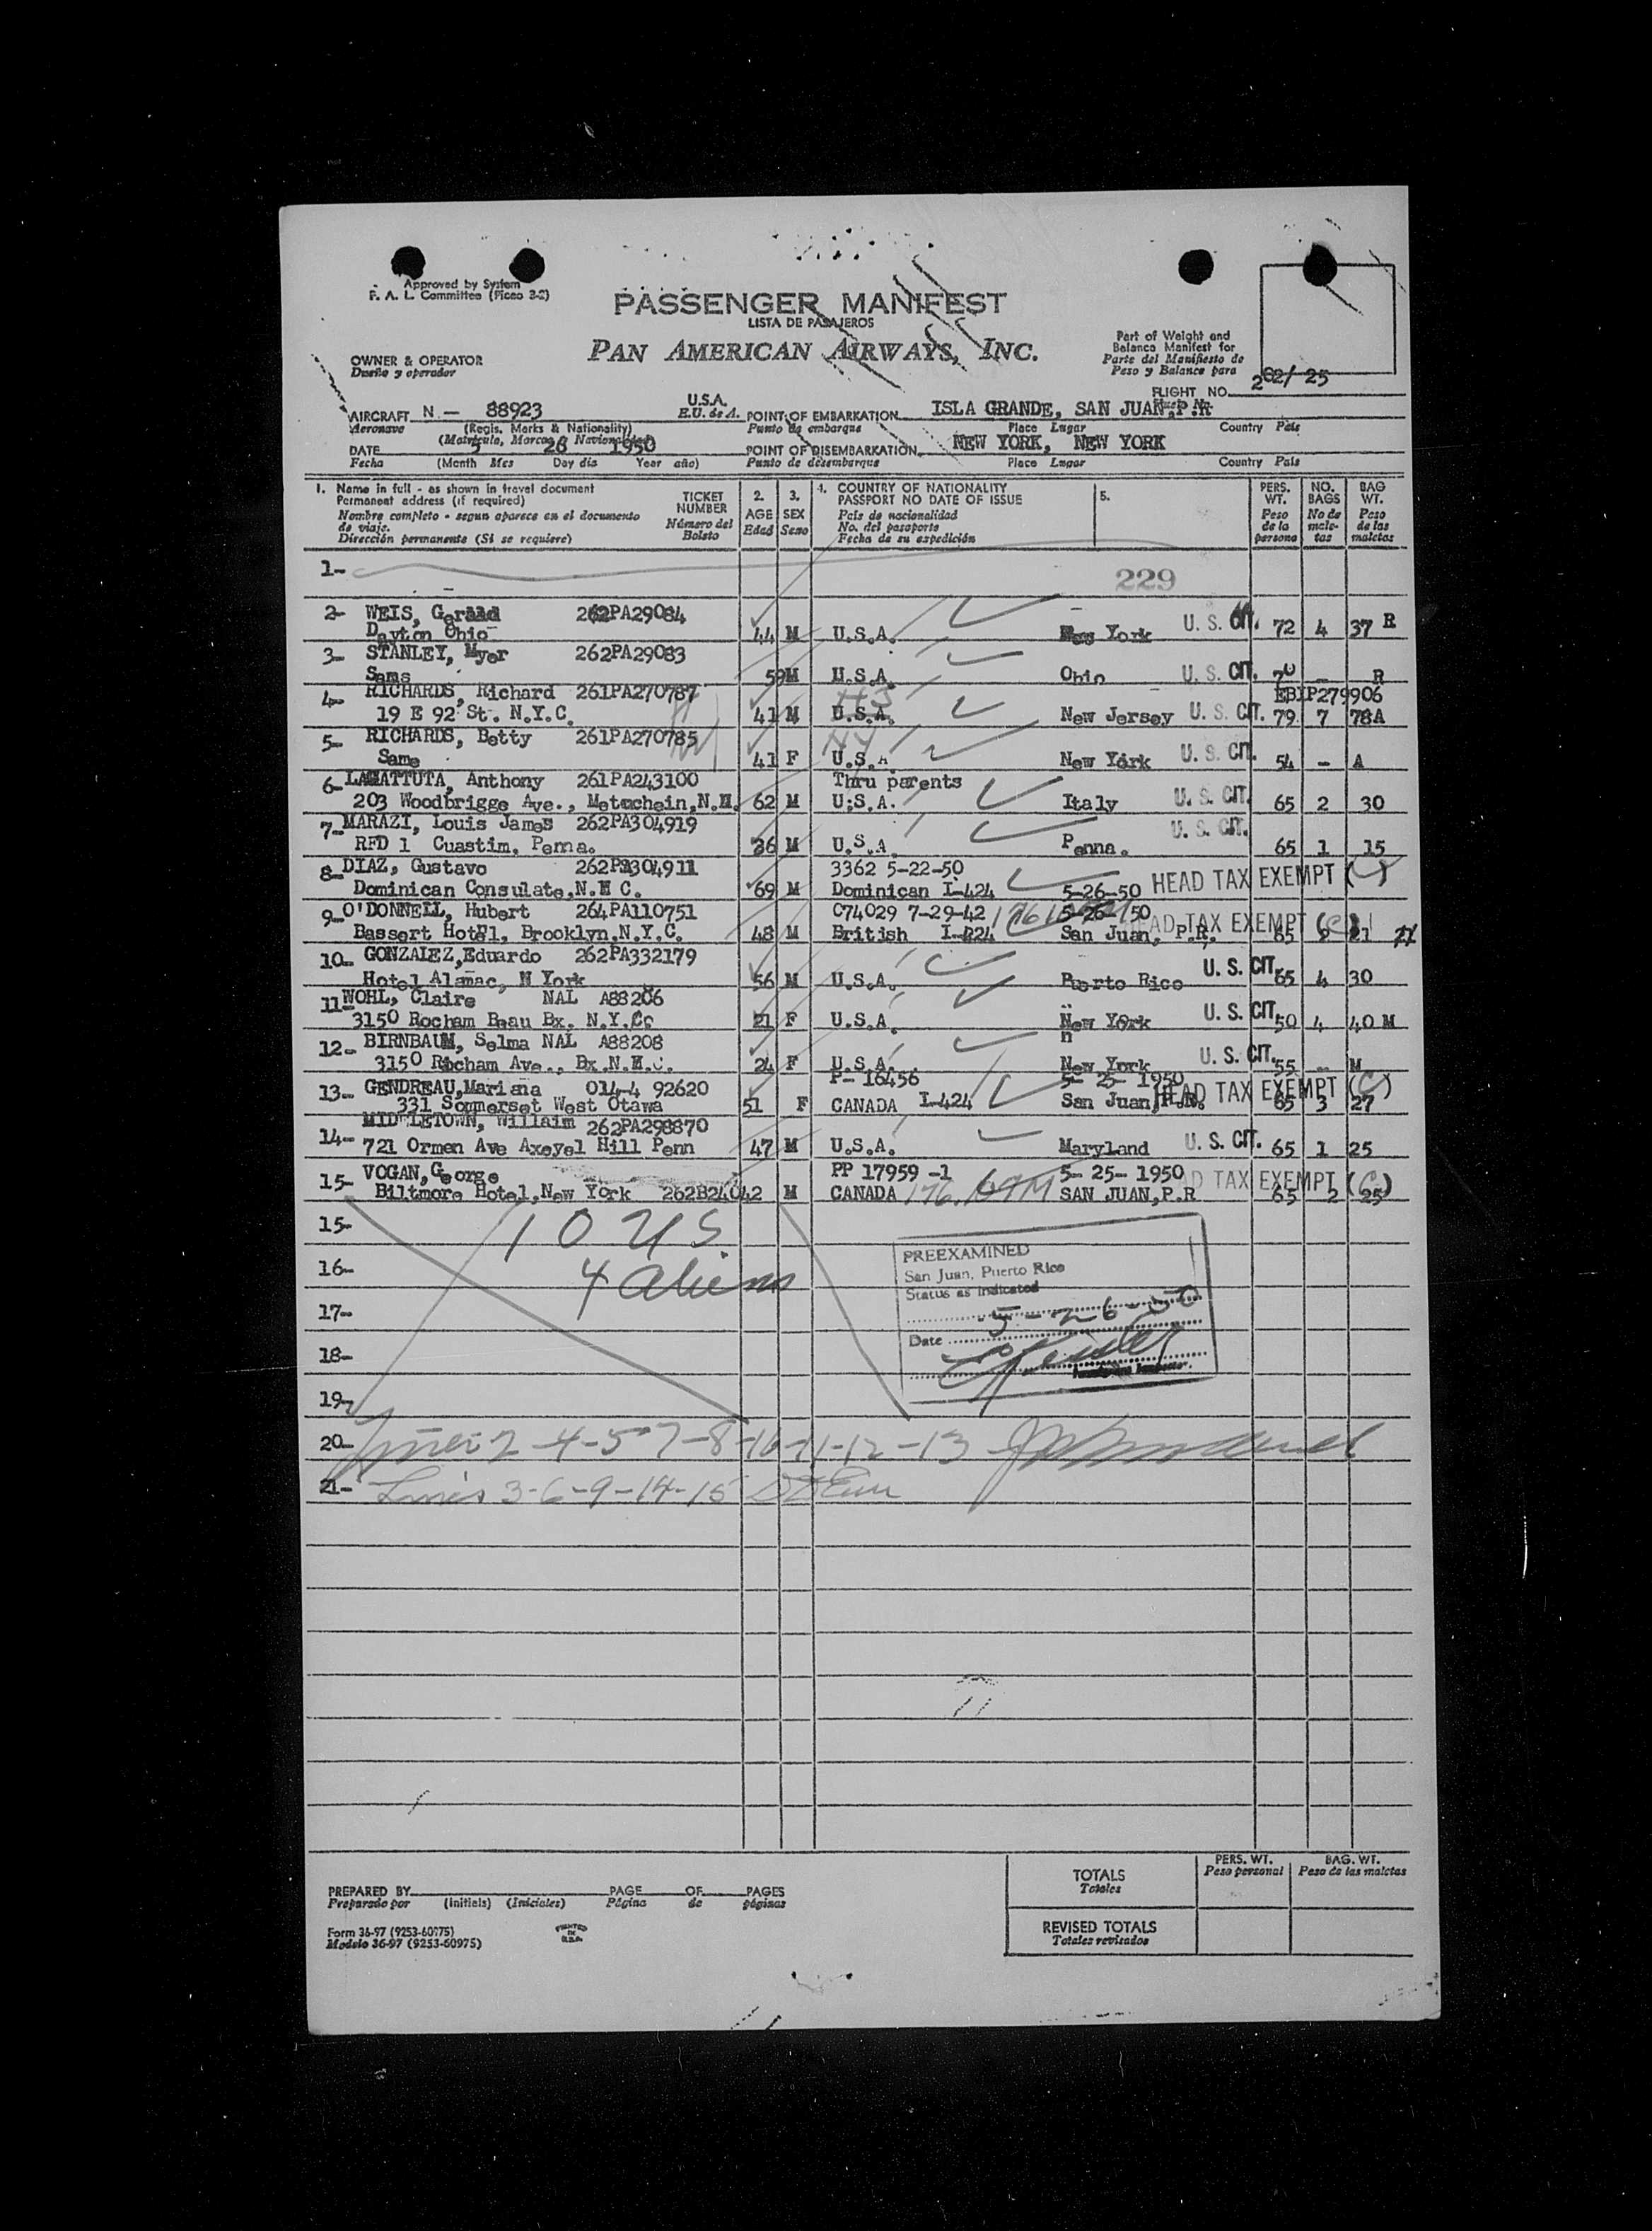 Approved by System
F. A. L. Committee (Picao 3-2)
PASSENGER MANIFEST
LISTA DE PASAJEROS
PAN AMERICAN AIRWAYS, INC.
OWNER & OPERATOR
Dueño y operador
Part of Weight and
Balance Manifest for
Parte del Manifiesto de
Peso y Balance para
FLIGHT NO. 202/ 25
AIRCRAFT N — 88923 U.S.A. E.U. de A. POINT OF EMBARKATION ISLA GRANDE, SAN JUAN,P.R
Aeronave (Regis. Marks & Nationality) Punto de embarque Place Lugar Country País
(Matrícula, Marcas y Nacionalidad)
DATE 5 26 1950 POINT OF DISEMBARKATION NEW YORK, NEW YORK
Fecha (Month Mes Day dia Year año) Punto de desembarque Place Lugar Country País
1. Name in full - as shown in travel document
Permanent address (if required)
Nombre completo - segun aparece en el documento
de viaje.
Dirección permanente (Si se requiere)
TICKET
NUMBER
Número del
Boleto
2.
AGE
Edad
3.
SEX
Sexo
4. COUNTRY OF NATIONALITY
PASSPORT NO DATE OF ISSUE
País de nacionalidad
No. del pasaporte
Fecha de su expedición
5.
PERS.
WT.
Peso
de la
persona
NO.
BAGS
No de
male-
tas
BAG
WT.
Peso
de las
maletas
1-
229
2- WEIS, Gerald 262PA29084
Dayton Ohio 44 M U.S.A. New York U. S. CIT. 72 4 37 R
3- STANLEY, Myer 262PA29083
Sams 59M U.S.A. Ohio U. S. CIT. 70 - R
4- RICHARDS, Richard 261PA270787 EBIP279906
19 E 92 St. N.Y.C. 41 M U.S.A. New Jersey U. S. CIT. 79 7 78A
5- RICHARDS, Betty 261PA270785
Same 41 F U.S.A New York U. S. CIT. 54 - A
6- LAGATTUTA, Anthony 261PA243100 Thru parents
203 Woodbrigge Ave., Metuchein,N.H. 62 M U.S.A. Italy U. S. CIT. 65 2 30
7- MARAZI, Louis James 262PA304919
RFD 1 Cuastim, Penna. 36 M U.S.A. Penna. U. S. CIT. 65 1 15
8- DIAZ, Gustavo 262PA304911 3362 5-22-50
Dominican Consulate,N.Y C. 69 M Dominican I-424 5-26-50 HEAD TAX EXEMPT (C)
9- O'DONNELL, Hubert 264PA110751 C74029 7-29-42 5-26-150
Bassert Hotel, Brooklyn,N.Y.C. 48 M British I-424 San Juan, P.R. HEAD TAX EXEMPT (C) 65 21
10- GONZALEZ,Eduardo 262PA332179
Hotel Alamac, N York 56 M U.S.A. Puerto Rico U. S. CIT. 65 4 30
11- WOHL, Claire NAL A88206
3150 Rocham Beau Bx. N.Y.C. 21 F U.S.A. New York U. S. CIT. 50 4 40 M
12- BIRNBAUM, Selma NAL A88208
3150 Rocham Ave., Bx.N.Y.C. 24 F U.S.A. New York U. S. CIT. 55 - M
13- GENDREAU,Mariana 014-4 92620 P- 16456 5- 25- 1950
331 Sommerset West Otawa 51 F CANADA I-424 San Juan,P.R. HEAD TAX EXEMPT (C) 65 3 27
MIDDLETOWN, Willaim 262PA298870
14- 721 Ormen Ave Axeyel Hill Penn 47 M U.S.A. Maryland U. S. CIT. 65 1 25
15- VOGAN,George PP 17959 -1 5- 25- 1950
Biltmore Hotel,New York 262B24042 M CANADA SAN JUAN,P.R HEAD TAX EXEMPT (C) 65 2 25
15-
10 US.
16-
4 aliens
17-
18-
19-
PREEXAMINED
San Juan, Puerto Rico
Status as indicated
5-26-50
Date
20- Lines 2-4-5-7-8-10-11-12-13
21- Lines 3-6-9-14-15
TOTALS
Totales
PERS. WT.
Peso personal
BAG. WT.
Peso de las maletas
REVISED TOTALS
Totales revisados
PREPARED BY PAGE OF PAGES
Preparado por (Initials) (Iniciales) Página de páginas
Form 36-97 (9253-60975)
Modelo 36-97 (9253-60975)
PRINTED
IN
U.S.A.